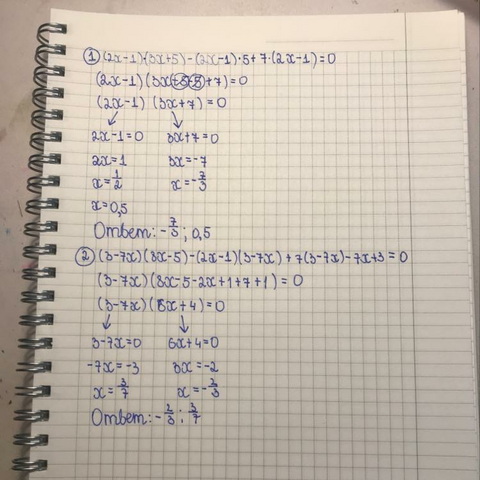 ① (2x-1)(3x+5)-(2x-1)·5+7·(2x-1)=0
(2x-1)(3x+5-5+7)=0
(2x-1) (3x+7)=0
2x-1=0 3x+7=0
2x=1 3x=-7
x=1/2 x=-7/3
x=0,5
Ответ: -7/3; 0,5
② (3-7x)(8x-5)-(2x-1)(3-7x)+7(3-7x)-7x+3=0
(3-7x)(8x-5-2x+1+7+1)=0
(3-7x)(6x+4)=0
3-7x=0 6x+4=0
-7x=-3 3x=-2
x=3/7 x=-2/3
Ответ: -2/3; 3/7